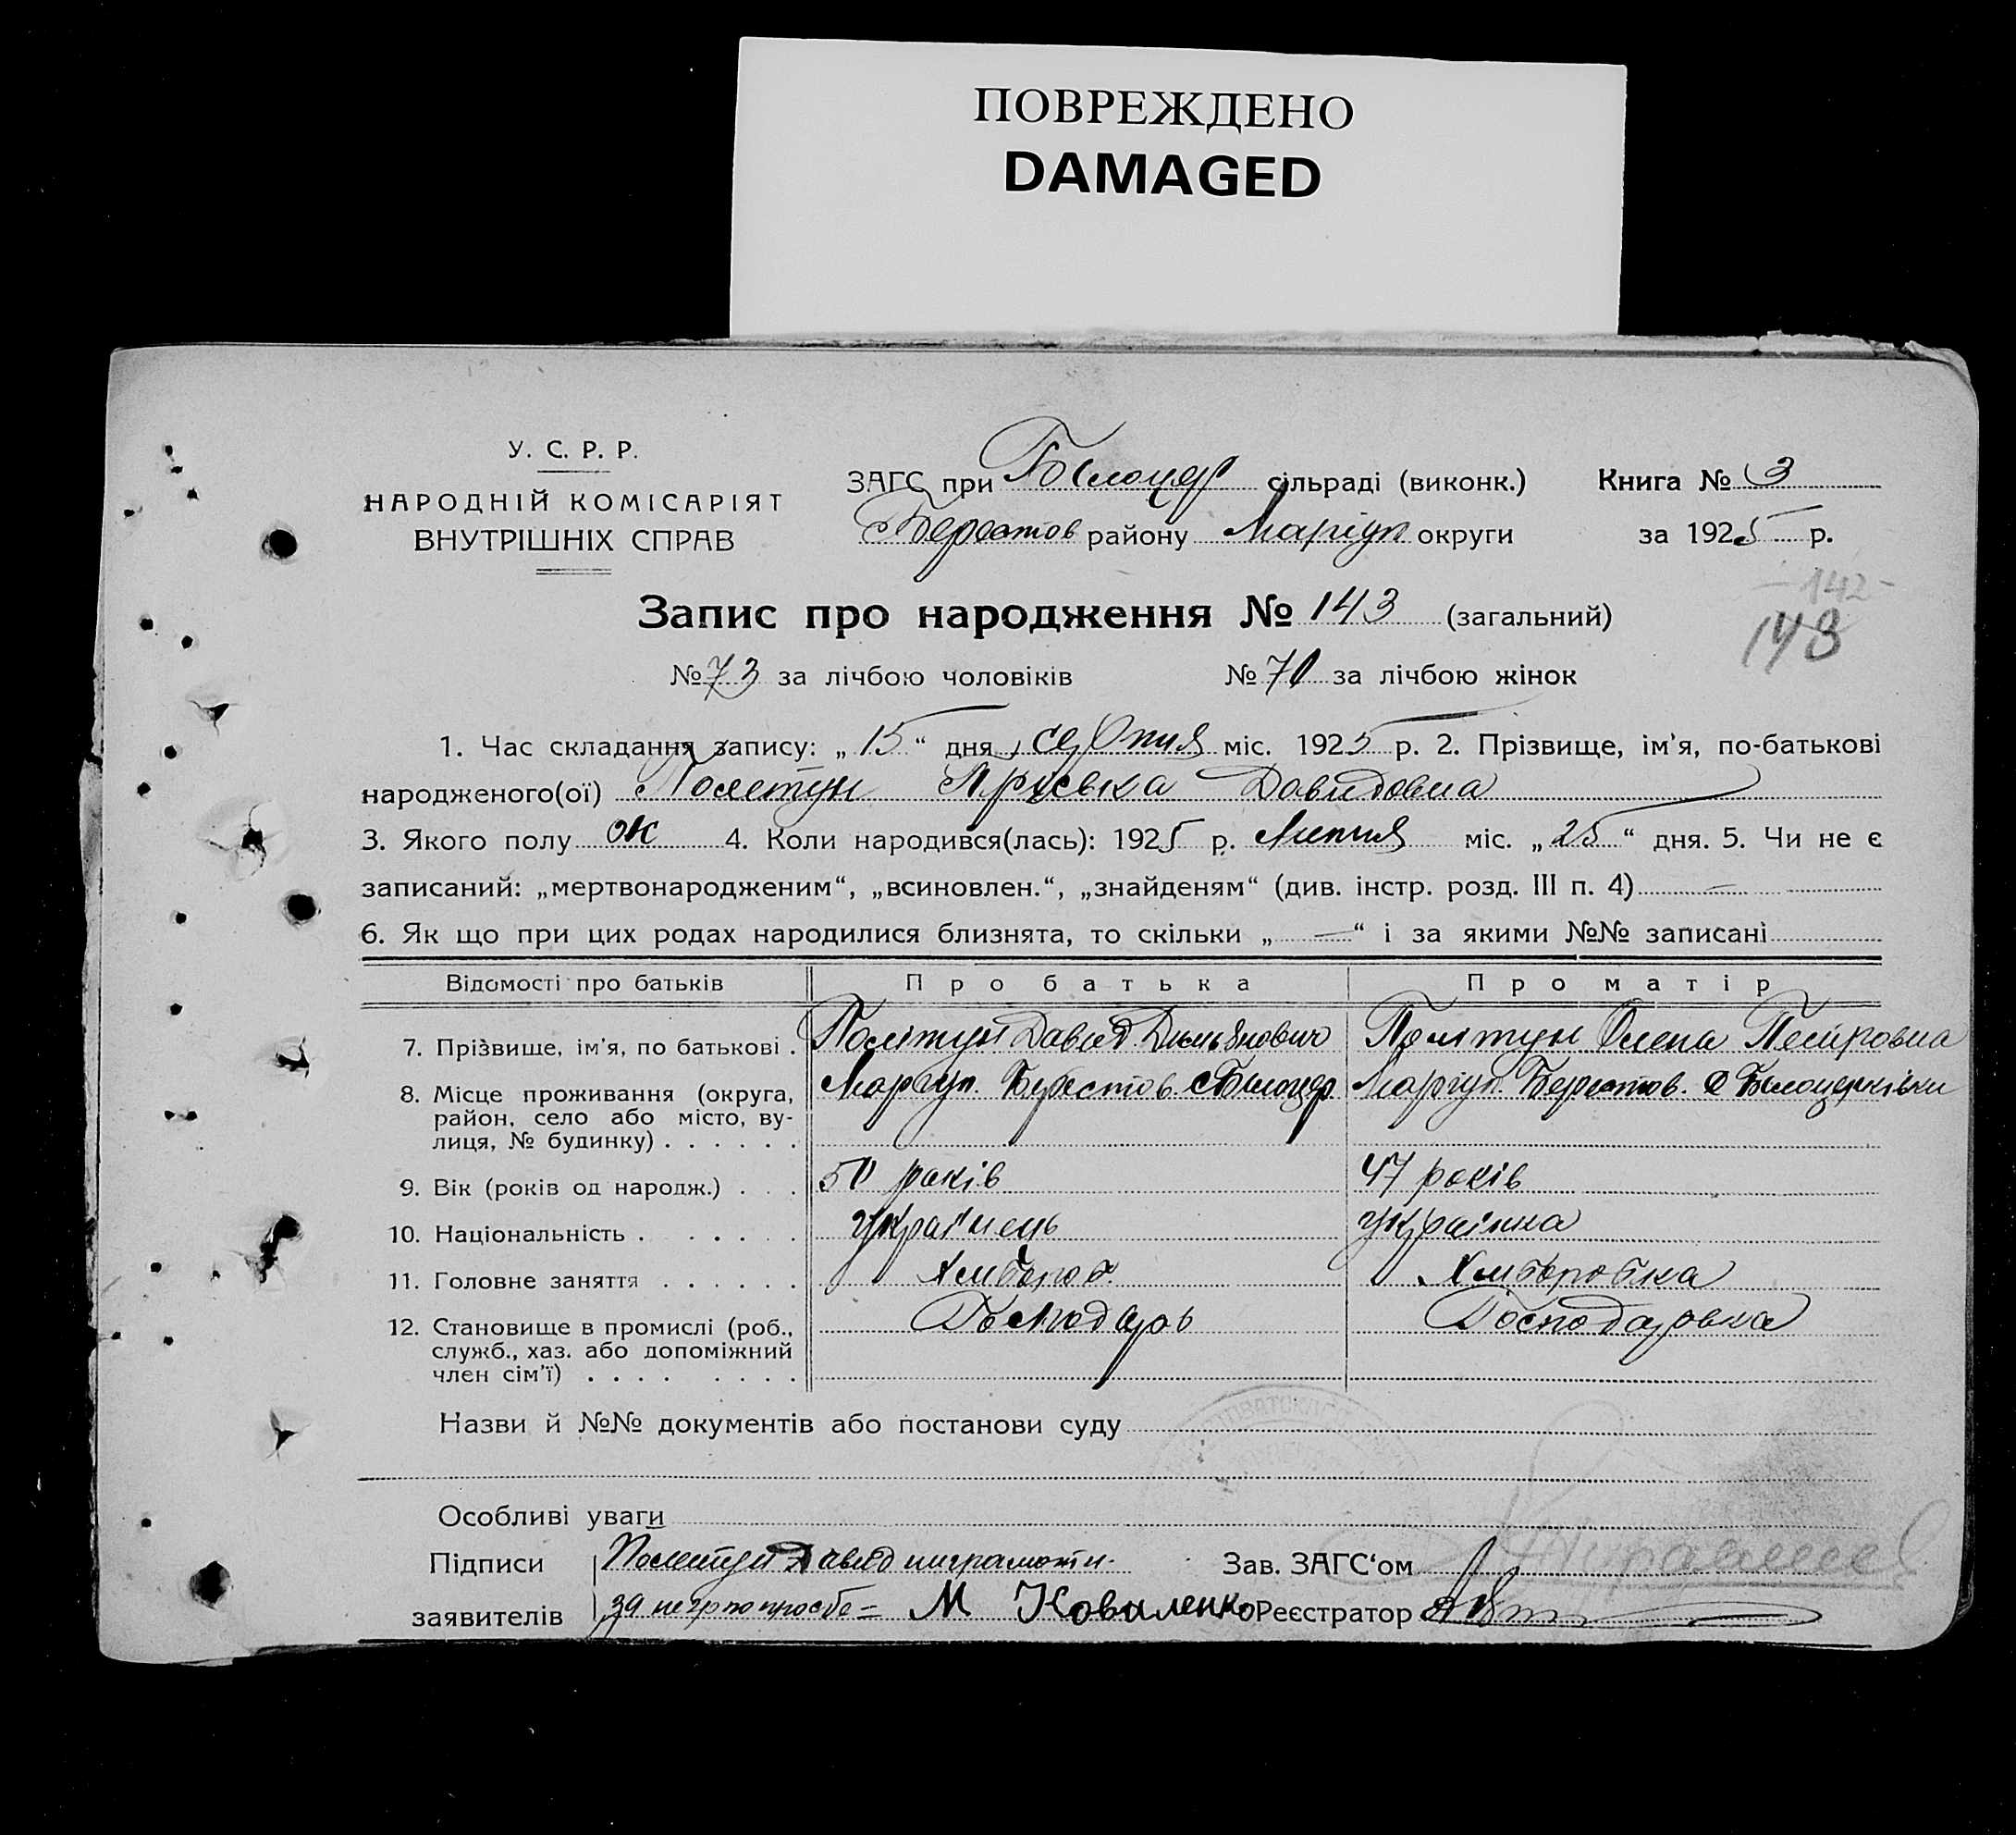 ПОВРЕЖДЕНО
DAMAGED
У. С. Р. Р.
НАРОДНІЙ КОМІСАРІЯТ
ВНУТРІШНІХ СПРАВ
ЗАГС при Білоцер сільраді (виконк.) Книга № 3
Берестов району Маріуп округи за 1925 р.
Запис про народження № 143 (загальний)
142
143
№ 73 за лічбою чоловіків № 70 за лічбою жінок
1. Час складання запису: „ 15 “ дня серпня міс. 1925 р. 2. Прізвище, ім’я, по-батькові
народженого(ої) Давидовна
3. Якого полу ж 4. Коли народився(лась): 1925 р. Липня міс. „ 25 “ дня. 5. Чи не є
записаний: „мертвонародженим“, „всиновлен.“, „знайденям“ (див. інстр. розд. III п. 4) —
6. Як що при цих родах народилися близнята, то скільки „ — “ і за якими №№ записані
Відомості про батьків Про батька Про матір
7. Прізвище, ім’я, по батькові . Політун Давид Демьянович Політун Олена Петровна
8. Місце проживання (округа, Маріуп. Берестов. с Білоцер Маріуп. Берестов. с Білоцерківки
район, село або місто, ву-
лиця, № будинку) . . . . . .
9. Вік (років од народж.) . . . 50 років 47 років
10. Національність . . . . . . Українець Українка
11. Головне заняття . . . . . . Хлібороб. Хліборобка
12. Становище в промислі (роб., Господарь Господаровка
служб., хаз. або допоміжний
член сім’ї) . . . . . . . .
Назви й №№ документів або постанови суду
Особливі уваги
Підписи Давид Зав. ЗАГС‘ом
заявителів М Коваленко Реєстратор